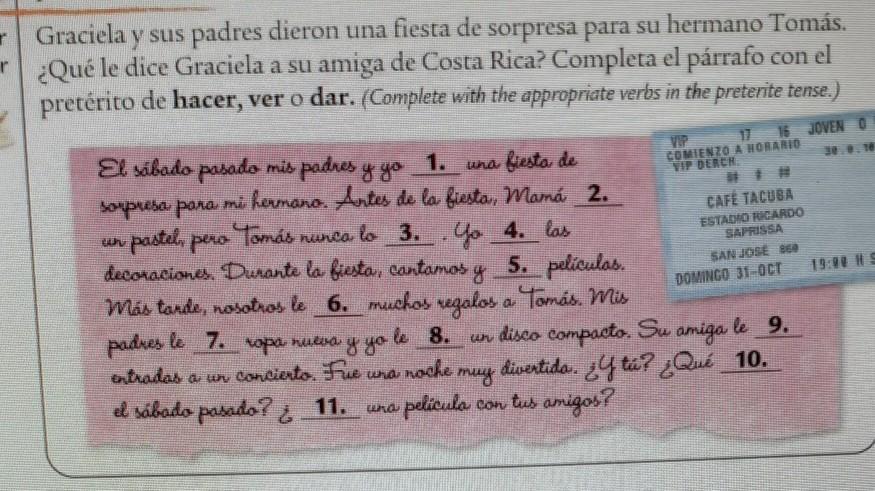 Graciela y sus padres dieron una fiesta de sorpresa para su hermano Tomás.
¿Qué le dice Graciela a su amiga de Costa Rica? Completa el párrafo con el
pretérito de hacer, ver o dar. (Complete with the appropriate verbs in the preterite tense.)
El sábado pasado mis padres y yo 1. una fiesta de
sorpresa para mi hermano. Antes de la fiesta, Mamá 2.
un pastel, pero Tomás nunca lo 3. . Yo 4. las
decoraciones. Durante la fiesta, cantamos y 5. películas.
Más tarde, nosotros le 6. muchos regalos a Tomás. Mis
padres le 7. ropa nueva y yo le 8. un disco compacto. Su amiga le 9.
entradas a un concierto. Fue una noche muy divertida. ¿Y tú? ¿Qué 10.
el sábado pasado? ¿ 11. una película con tus amigos?
VIP 17 16 JOVEN O
COMIENZO A HORARIO
VIP DERCH.
CAFÉ TACUBA
ESTADIO RICARDO
SAPRISSA
SAN JOSÉ
DOMINGO 31-OCT 19:00 H